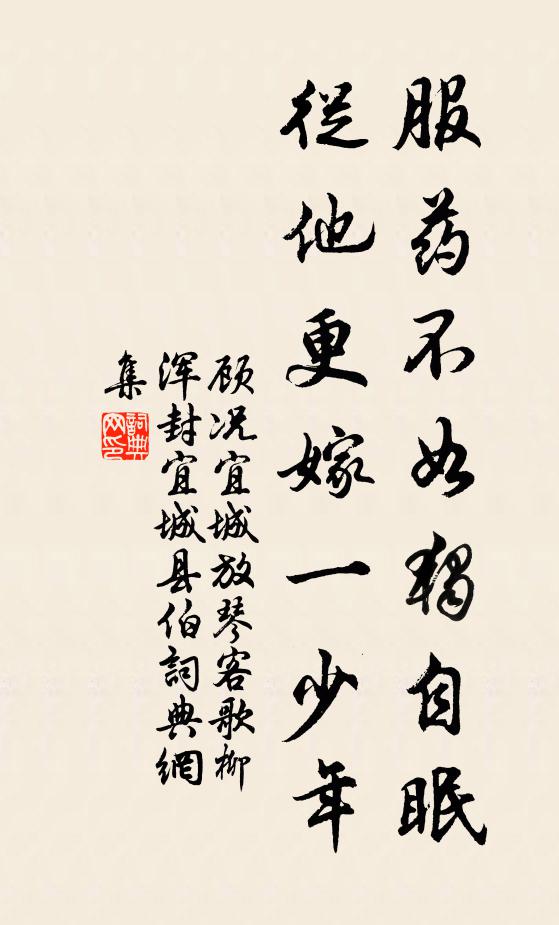 服药不如獨自眠
從他更嫁一少年
顾况宜城放琴客歌柳
浑封宜城县伯詞典網
集
詞典
网印